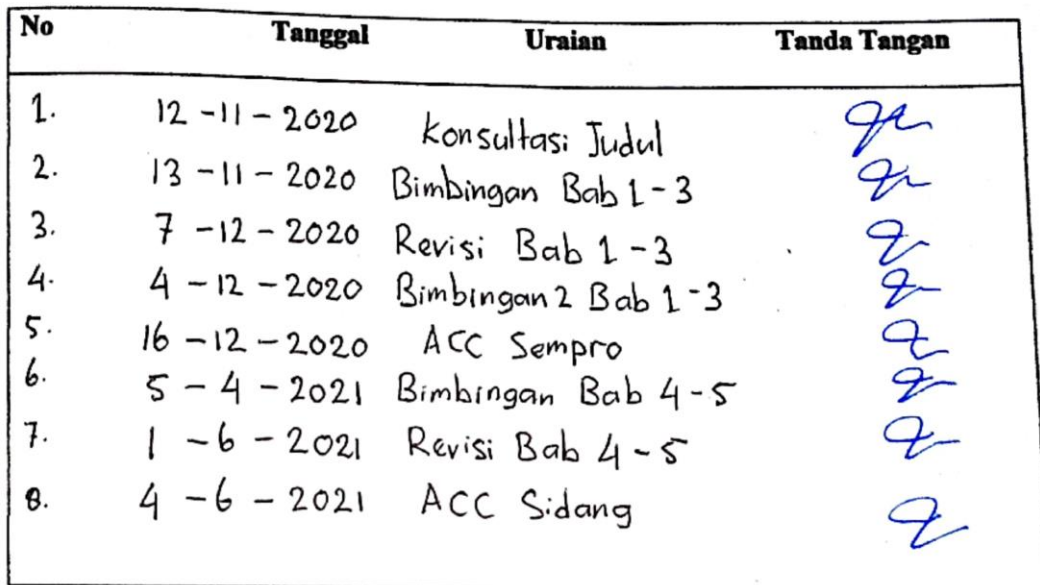 No Tanggal Uraian Tanda Tangan
1. 12 - 11 - 2020 Konsultasi Judul
2. 13 - 11 - 2020 Bimbingan Bab 1 - 3
3. 7 - 12 - 2020 Revisi Bab 1 - 3
4. 4 - 12 - 2020 Bimbingan 2 Bab 1 - 3
5. 16 - 12 - 2020 ACC Sempro
6. 5 - 4 - 2021 Bimbingan Bab 4 - 5
7. 1 - 6 - 2021 Revisi Bab 4 - 5
8. 4 - 6 - 2021 ACC Sidang